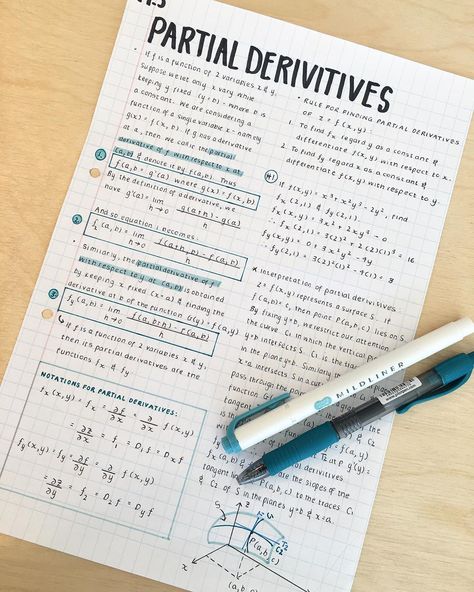 PARTIAL DERIVITIVES
• if f is a function of 2 variables x & y,
suppose we let only x vary while
keeping y fixed (y = b) where b is
a constant. We are considering a
function of a single variable x - namely
g(x) = f(x, b). If g has a derivative
at a, then we call it the partial
derivative of f with respect to x at
(a, b) & denote it by f(a, b). Thus
1. f(a, b = g'(a) where g(x) = f(x, b)
By the definition of a derivative, we
have g'(a) = lim h→0 g(a+h) - g(a) / h
And so equation 1 becomes:
2. fx(a, b) = lim h→0 f(a+h, b) - f(a, b) / h
• Similarly, the partial derivative of f
with respect to y at (a, b) is obtained
by keeping x fixed (x=a) & finding the
derivative at b of the function G(y) = f(a, y)
3. fy(a, b) = lim h→0 f(a, b+h) - f(a, b) / h
↳ if f is a function of 2 variables x & y,
then its partial derivatives are the
functions fx & fy
NOTATIONS FOR PARTIAL DERIVATIVES:
fx(x, y) = fx = ∂f/∂x = ∂/∂x f(x, y)
= ∂z/∂x = f1 = D1f = Dxf
fy(x, y) = fy = ∂f/∂y = ∂/∂y f(x, y)
= ∂z/∂y = f2 = D2f = Dyf
• RULE FOR FINDING PARTIAL DERIVATIVES
OF z = f(x, y):
1. To find fx regard y as a constant &
differentiate f(x, y) with respect to x.
2. To find fy regard x as a constant &
differentiate f(x, y) with respect to y.
#1
If f(x, y) = x³ + x²y³ - 2y², find
fx(2,1) & fy(2,1).
fx(x, y) = 3x² + 2xy³ - 0
fx(2,1) = 3(2)² + 2(2)(1)³ = 16
fy(x, y) = 0 + 3x²y² - 4y
fy(2,1) = 3(2)²(1)² - 4(1) = 8
* interpretation of partial derivitives
z = f(x, y) represents a surface S. If
f(a, b) = c, then point P(a, b, c) lies on S.
By fixing y = b, we restrict our attention
the curve C1 in which the vertical
y=b intersects S. C1 is the
in the plane y=b. Similarly the
x=a intersects S in a
pass through the
function
tangent
MILDLINER
f(a, y),
T2 at P
g(y) =
derivatives
are the slopes of the
tangent P(a, b, c) to the traces C1
& C2 of S in the planes y=b & x=a.
z
S
T2
C2
P(a, b, c)
x
(a, b,